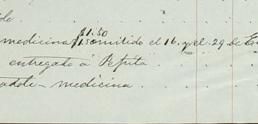 de
medicina $1.50 remitido el 16 y el 29 de En
entregado á Pepita
medicina